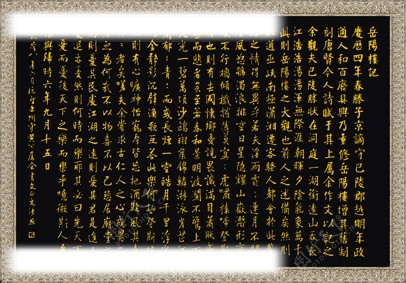 岳陽樓記
慶曆四年春滕子京謫守巴陵郡越明年政
通人和百廢具興乃重修岳陽樓增其舊制
刻唐賢今人詩賦于其上屬余作文以記之
余觀夫巴陵勝狀在洞庭一湖銜遠山吞長
江浩浩湯湯橫無際涯朝暉夕陰氣象萬千
此則岳陽樓之大觀也前人之述備矣然則
通巫峽南極瀟湘遷客騷人多會於此
之情得無異乎若夫霪雨霏霏連月不
風怒號濁浪排空日星隱耀山嶽潛形
不行檣傾楫摧薄暮冥冥虎嘯猿啼登
也則有去國懷鄉憂讒畏譏滿目蕭然
而悲者矣至若春和景明波瀾不驚上
光一碧萬頃沙鷗翔集錦鱗游泳岸芷
郁郁青青而或長煙一空皓月千里浮
金靜影沉璧漁歌互答此樂何極登斯
則有心曠神怡寵辱皆忘把酒臨風其
者矣嗟夫余嘗求古仁人之心
之為何哉不以物喜不以己悲居廟堂
則憂其民處江湖之遠則憂其君是進
退亦憂然則何時而樂耶其必曰先天下
憂而憂後天下之樂而樂乎噫微斯人
與歸時六年九月十五日